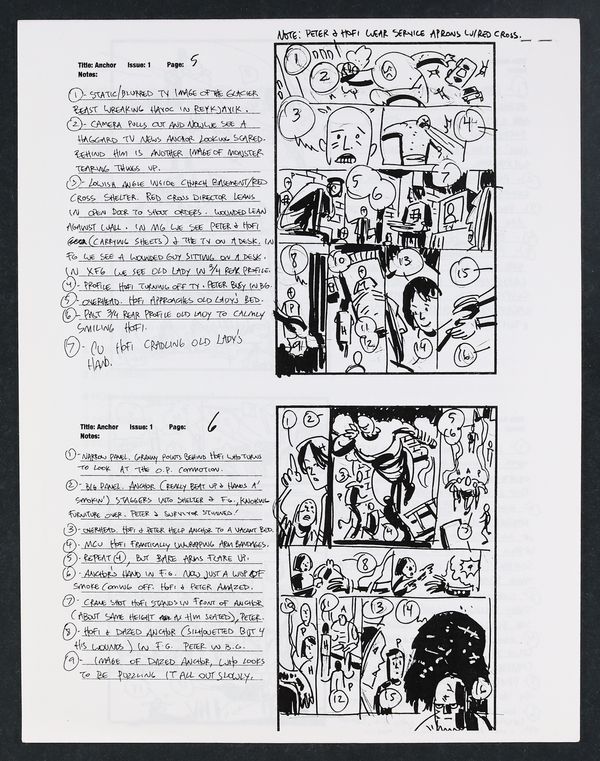 NOTE: PETER & HOFI WEAR SERVICE APRONS W/RED CROSS.
Title: Anchor Issue: 1 Page: 5
Notes:
1 - STATIC/BLURRED TV IMAGE OF THE GLACIER
BEAST WREAKING HAVOC IN REYKJAVIK.
2 - CAMERA PULLS OUT AND NOW WE SEE A
HAGGARD TV NEWS ANCHOR LOOKING SCARED.
BEHIND HIM IS ANOTHER IMAGE OF MONSTER
TEARING THINGS UP.
3 - LOWISH ANGLE INSIDE CHURCH BASEMENT/RED
CROSS SHELTER. RED CROSS DIRECTOR LEANS
IN OPEN DOOR TO SHOUT ORDERS. WOUNDED LEAN
AGAINST WALL. IN MG WE SEE PETER & HOFI
(CARRYING SHEETS) & THE TV ON A DESK. IN
FG WE SEE A WOUNDED GUY SITTING ON A DESK.
IN XFG WE SEE OLD LADY IN 3/4 REAR PROFILE.
4 - PROFILE HOFI TURNING OFF TV. PETER BUSY IN BG.
5 - OVERHEAD. HOFI APPROACHES OLD LADY'S BED.
6 - PAST 3/4 REAR PROFILE OLD LADY TO CALMLY
SMILING HOFI.
7 - CU HOFI CRADLING OLD LADY'S
HAND.
1 2 3 4 5 6 7 8 9 11 12 13 14 15 16
Title: Anchor Issue: 1 Page: 6
Notes:
1 - NARROW PANEL. GRANNY POINTS BEHIND HOFI WHO TURNS
TO LOOK AT THE O.P. COMMOTION.
2 - BIG PANEL. ANCHOR (REALLY BEAT UP & HANDS A'
SMOKIN') STAGGERS INTO SHELTER & F.G., KNOCKING
FURNITURE OVER. PETER & SURVIVOR STUNNED!
3 - OVERHEAD. HOFI & PETER HELP ANCHOR TO A VACANT BED.
4 - MCU HOFI FRANTICALLY UNWRAPPING ARM BANDAGES.
5 - REPEAT 4, BUT BARE ARMS FLARE UP.
6 - ANCHOR'S HAND IN F.G. NOW JUST A WISP OF
SMOKE COMING OFF. HOFI & PETER AMAZED.
7 - CRANE SHOT HOFI STANDS IN FRONT OF ANCHOR
(ABOUT SAME HEIGHT AS HIM SEATED), PETER.
8 - HOFI & DAZED ANCHOR (SILHOUETTED BUT 4
HIS WOUNDS) IN F.G. PETER IN B.G.
9 - IMAGE OF DAZED ANCHOR, WHO LOOKS
TO BE PUZZLING IT ALL OUT SLOWLY.
1 2 3 4 5 6 7 8 9 10 11 12 13 14 15 16